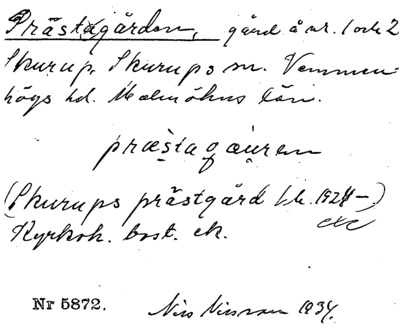 Prästagården, gård å nr. 1 och 2
Skurup, Skurups sn. Vemmen-
högs hd. Malmöhus län.
præstagåuren
(Skurups prästgård 1924 –)
Kyrkoh. bost. ek.
Nr 5872. Nils Nilsson 1934.